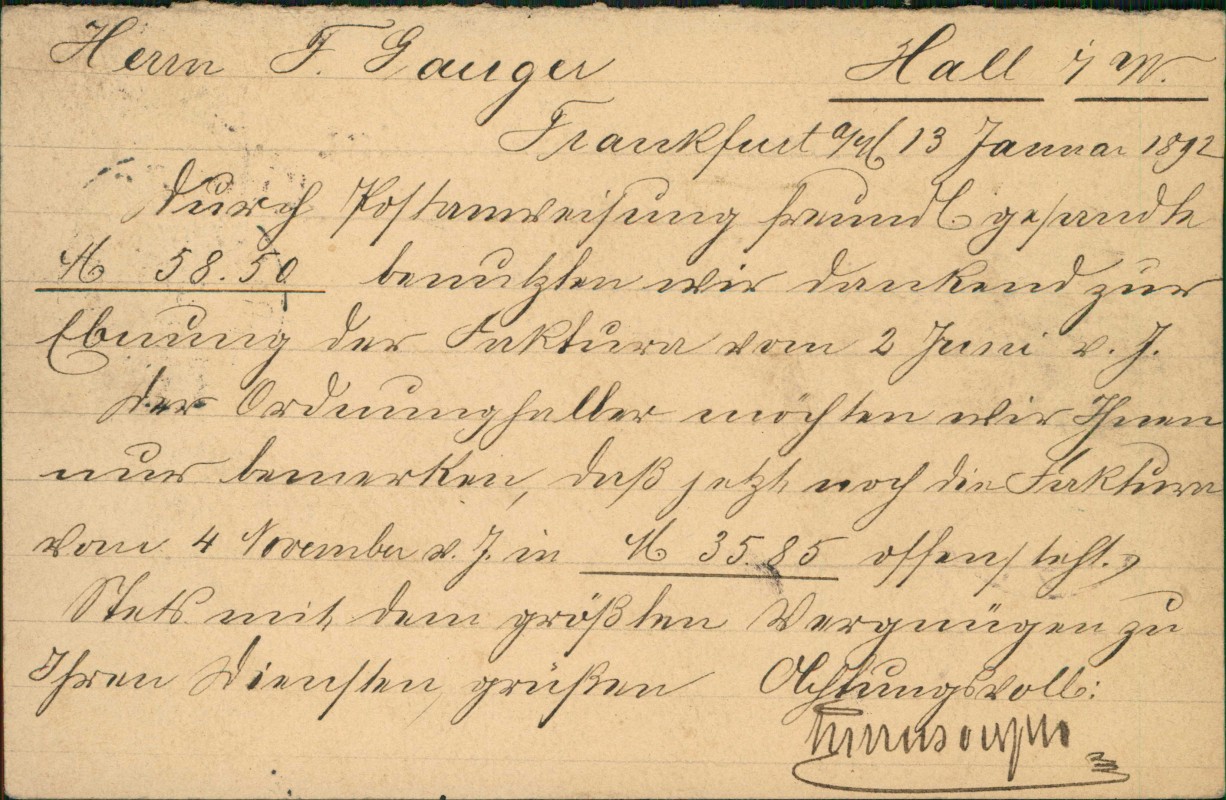 Herrn F. Gauger Hall i/W.
Frankfurt a/M 13 Januar 1892
Durch Postanweisung freundl gesandte
M 58.50 benutzten wir dankend zur
Ebnung der Faktura vom 2 Juni v. J.
Der Ordnunghalber möchten wir Ihnen
nur bemerken, daß jetzt noch die Faktura
vom 4 November v. J. in M 35.85 offensteht.
Stets mit dem größten Vergnügen zu
Ihren Diensten, grüßen Achtungsvoll: